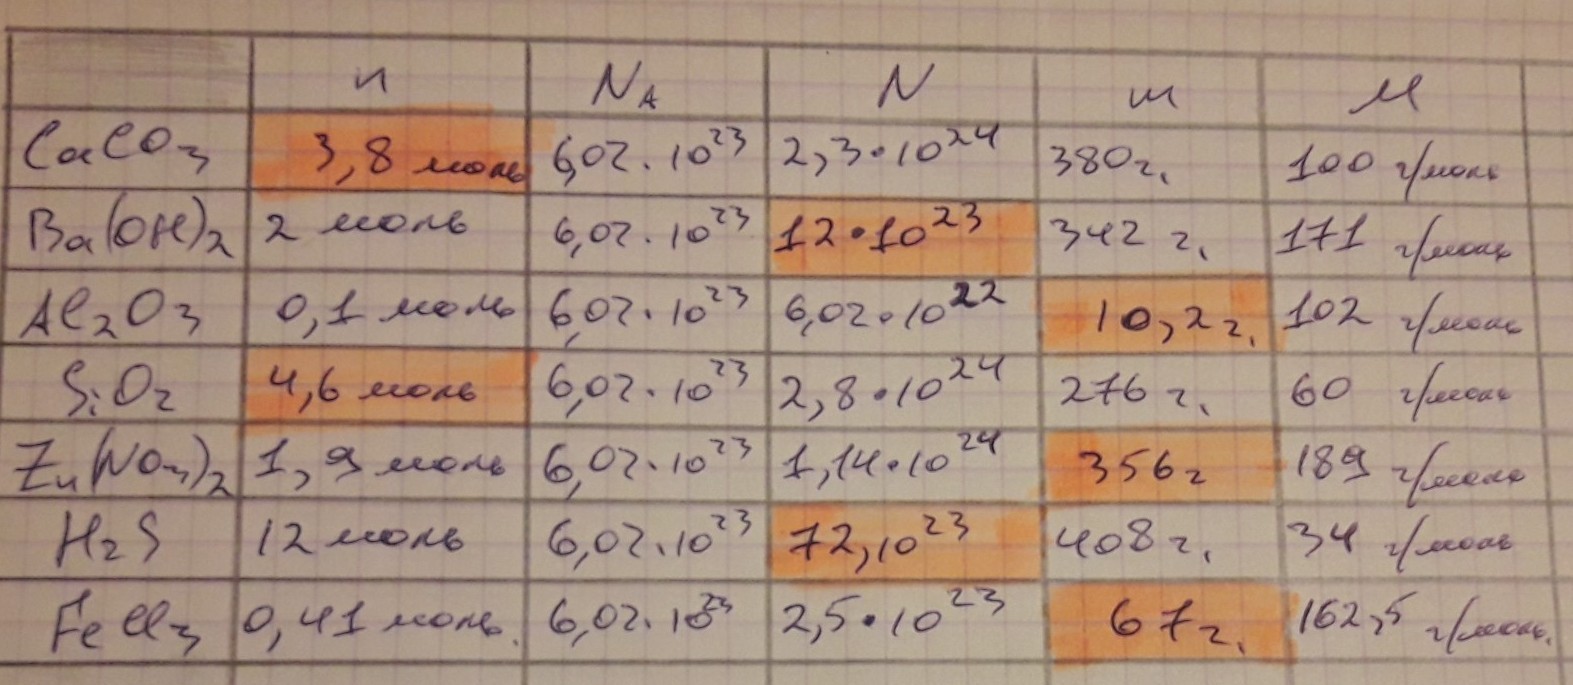 n N_A N m M
CaCO₃ 3,8 моль 6,02·10²³ 2,3·10²⁴ 380г. 100 г/моль
Ba(OH)₂ 2 моль 6,02·10²³ 12·10²³ 342 г. 171 г/моль
Al₂O₃ 0,1 моль 6,02·10²³ 6,02·10²² 10,2г. 102 г/моль
SiO₂ 4,6 моль 6,02·10²³ 2,8·10²⁴ 276 г. 60 г/моль
Zn(NO₃)₂ 1,9 моль 6,02·10²³ 1,14·10²⁴ 356г 189 г/моль
H₂S 12 моль 6,02·10²³ 72,10²³ 408г. 34 г/моль
FeCl₃ 0,41 моль. 6,02·10²³ 2,5·10²³ 67г. 162,5 г/моль.